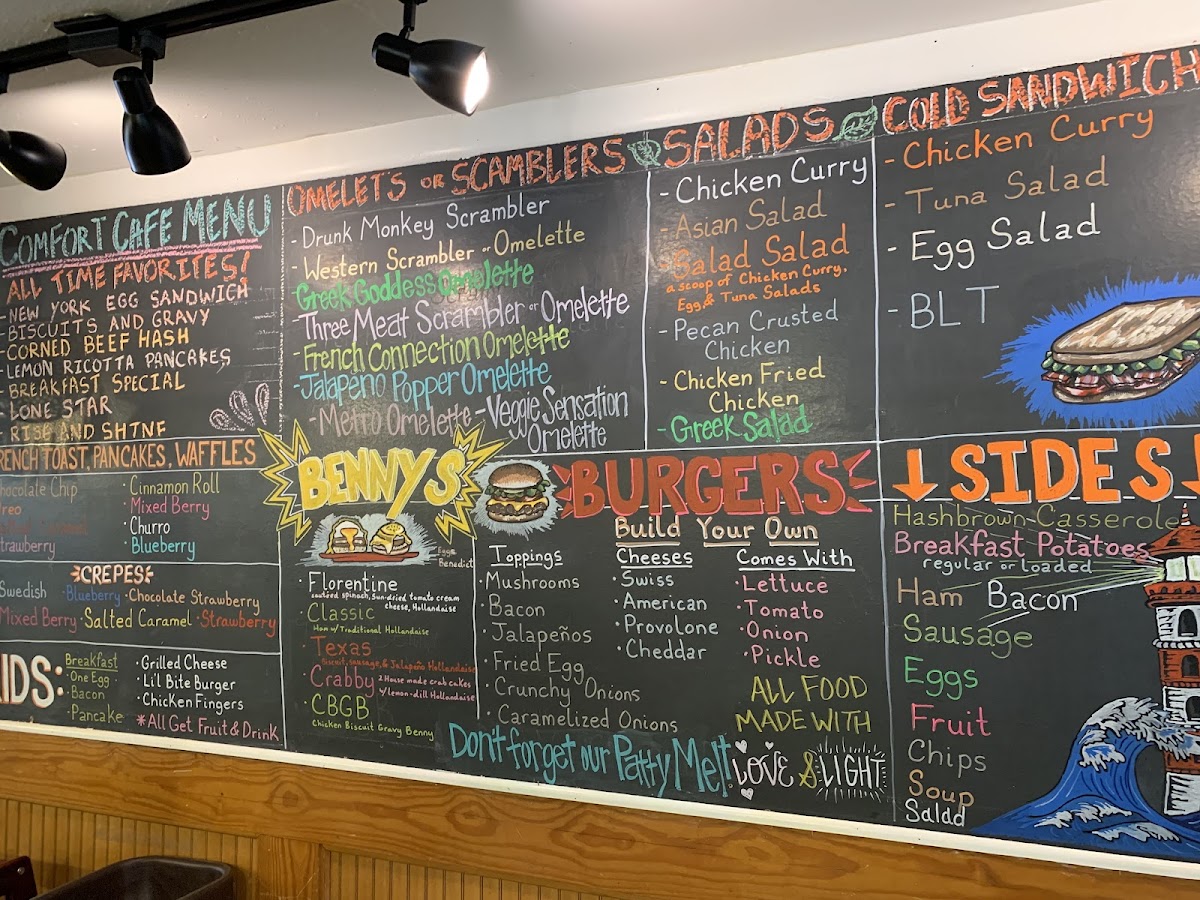 COMFORT CAFE MENU
ALL TIME FAVORITES!
- NEW YORK EGG SANDWICH
- BISCUITS AND GRAVY
- CORNED BEEF HASH
- LEMON RICOTTA PANCAKES
- BREAKFAST SPECIAL
- LONE STAR
- RISE AND SHINE
FRENCH TOAST, PANCAKES, WAFFLES
Chocolate Chip
Oreo
Strawberry
· Cinnamon Roll
· Mixed Berry
· Churro
· Blueberry
CREPES
Swedish · Blueberry · Chocolate Strawberry
Mixed Berry · Salted Caramel · Strawberry
KIDS:
Breakfast
· One Egg
· Bacon
· Pancake
· Grilled Cheese
· Li'l Bite Burger
· Chicken Fingers
*All Get Fruit & Drink
OMELETS OR SCAMBLERS
- Drunk Monkey Scrambler
- Western Scrambler or Omelette
- Greek Goddess Omelette
- Three Meat Scrambler or Omelette
- French Connection Omelette
- Jalapeño Popper Omelette
- Metro Omelette - Veggie Sensation
Omelette
BENNYS
Eggs
Benedict
· Florentine
sauteed spinach, sun-dried tomato cream
cheese, Hollandaise
· Classic
Ham w/ Traditional Hollandaise
· Texas
Biscuit, sausage, & Jalapeño Hollandaise
· Crabby 2 House made crab cakes
w/ lemon-dill Hollandaise
· CBGB
Chicken Biscuit Gravy Benny
SALADS
- Chicken Curry
- Asian Salad
- Salad Salad
a scoop of Chicken Curry,
Egg & Tuna Salads
- Pecan Crusted
Chicken
- Chicken Fried
Chicken
- Greek Salad
BURGERS
Build Your Own
Toppings
· Mushrooms
· Bacon
· Jalapeños
· Fried Egg
· Crunchy Onions
· Caramelized Onions
Cheeses
· Swiss
· American
· Provolone
· Cheddar
Comes With
· Lettuce
· Tomato
· Onion
· Pickle
ALL FOOD
MADE WITH
LOVE & LIGHT
Don't forget our Patty Melt!
COLD SANDWICH
- Chicken Curry
- Tuna Salad
- Egg Salad
- BLT
SIDES
Hashbrown Casserole
Breakfast Potatoes
regular or loaded
Ham Bacon
Sausage
Eggs
Fruit
Chips
Soup
Salad